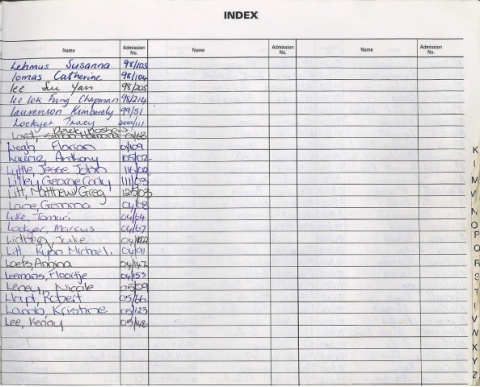 INDEX
Name Admission No. Name Admission No. Name Admission No.
Lehmus Susanna 98/103
Lomas Catherine 98/104
Lee Su Yan 98/205
Lee Lok Fung Chapman 98/214
Laurenson Kimberely 99/51
Lockyer Tracy
Leigh Florian 01/09
Laurie, Anthony 105/02
Lyttle, Jesse John
Lilley George Cody 111/03
Litt, Matthew Greg 125/03
Lane, Gemma 04/08
Like, Tamari 04/64
Lockyer, Marcus 04/67
Luke
Litt Ryan Michael. 04/91
Loets, Angina 04/147
Leemans, Floortje 04/153
Nicole 05/09
Lloyd, Robert 05/66
Lamb Kristine 05/125
Lee, Kenny 05/148
K
L
M
N
O
P
Q
R
S
T
U
V
W
X
Y
Z